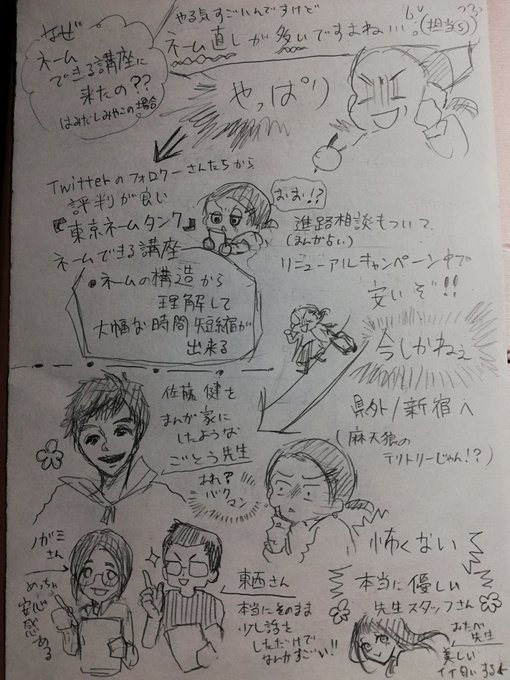 なぜ
ネーム
できる講座に
来たの??
はみだしみやこの場合
やる気すごいんですけど
ネーム直しが多いですよね…。(担当S)
やっぱり
Twitterのフォロワーさんたちから
評判が良い
『東京ネームタンク』
ネームできる講座
・ネームの構造から
理解して
大幅な時間短縮が
出来る
おお!?
進路相談もついて、
(まんが占い)
リニューアルキャンペーン中で
安いぞ!!
今しかねぇ
県外/新宿へ
(麻天狼の
テリトリーじゃん!?)
佐藤健を
まんが家に
したような
ごとう先生
あれ?
バクマン
ノガミ
さん
めっちゃ
安心
感ある
東西さん
本当にそのまま
少し話を
しただけで
なんかすごい!!
怖くない
本当に優しい
先生スタッフさん
おたか
先生
美しい
イイ匂いする